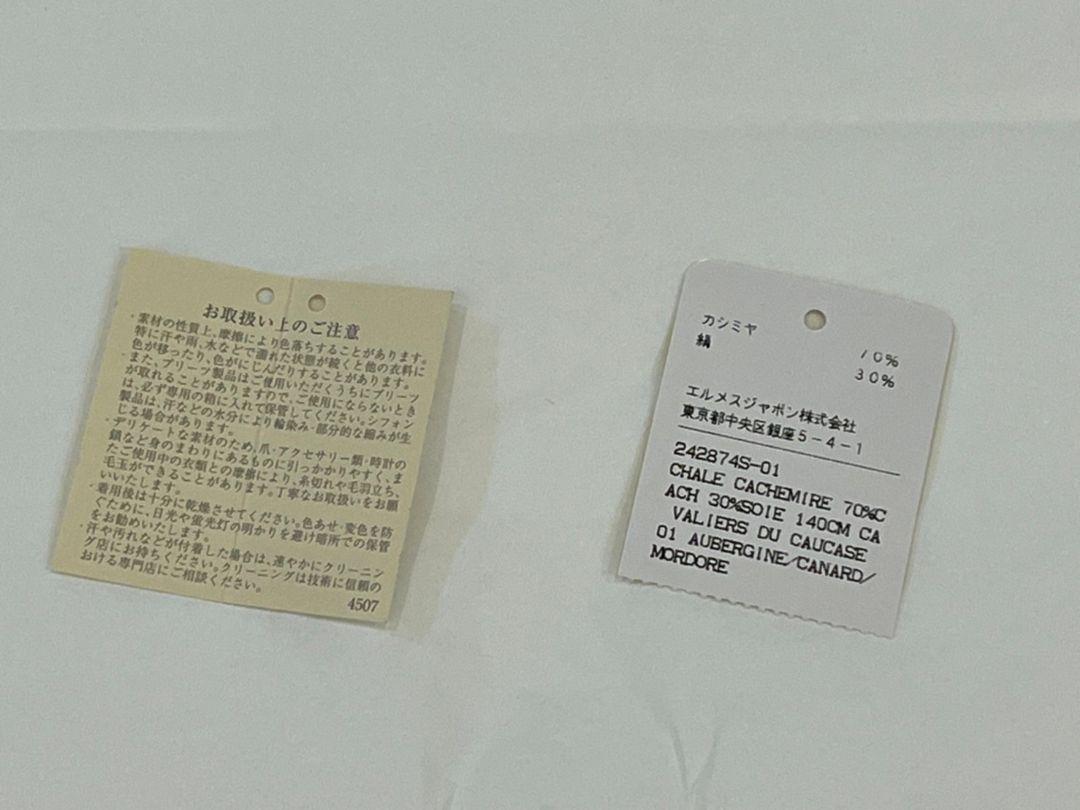 お取扱い上のご注意
・素材の性質上、摩擦により色落ちすることがあります。
特に汗や雨、水などで濡れた状態が続くと他の衣料に
色が移ったり、色がにじんだりすることがあります。
・また、プリーツ製品はご使用いただくうちにプリーツ
が取れることがありますので、ご使用にならないとき
は、必ず専用の箱に入れて保管してください。シフォン
製品は、汗などの水分により輪染み・部分的な縮みが生
じる場合があります。
・デリケートな素材のため、爪・アクセサリー類・時計の
鎖など身のまわりにあるものに引っかかりやすく、ま
たご使用中の衣類との摩擦により、糸切れや毛羽立ち、
毛玉ができることがあります。丁寧なお取扱いをお願
いいたします。
・着用後は十分に乾燥させてください。色あせ・変色を防
ぐために、日光や蛍光灯の明かりを避け暗所での保管
をお勧めいたします。
・汗や汚れなどが付着した場合は、速やかにクリーニン
グ店にお持ちください。クリーニングは技術に信頼の
おける専門店にご相談ください。
4507
カシミヤ 70%
絹 30%
エルメスジャポン株式会社
東京都中央区銀座5-4-1
242874S-01
CHALE CACHEMIRE 70%C
ACH 30%SOIE 140CM CA
VALIERS DU CAUCASE
01 AUBERGINE/CANARD/
MORDORE